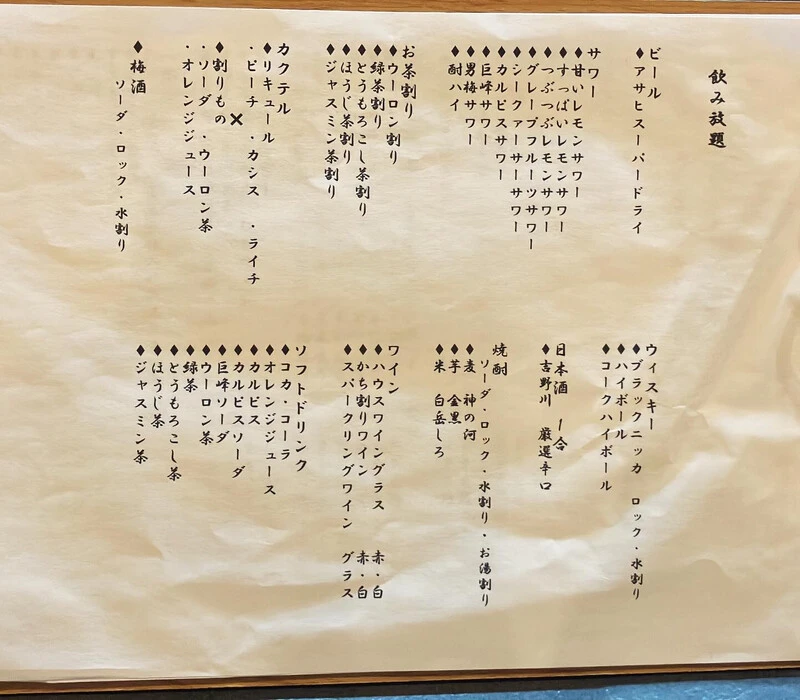 飲み放題
ビール
♦アサヒスーパードライ
サワー
♦甘いレモンサワー
♦すっぱいレモンサワー
♦つぶつぶレモンサワー
♦グレープフルーツサワー
♦シークァーサーサワー
♦カルピスサワー
♦巨峰サワー
♦男梅サワー
♦酎ハイ
お茶割り
♦ウーロン割り
♦緑茶割り
♦とうもろこし茶割り
♦ほうじ茶割り
♦ジャスミン茶割り
カクテル
♦リキュール
・ピーチ ・カシス ・ライチ
×
♦割りもの
・ソーダ ・ウーロン茶
・オレンジジュース
♦梅酒
ソーダ・ロック・水割り
ウィスキー
♦ブラックニッカ ロック・水割り
♦ハイボール
♦コークハイボール
日本酒 1合
♦吉野川 厳選辛口
焼酎
ソーダ・ロック・水割り・お湯割り
♦麦 神の河
♦芋 金黒
♦米 白岳しろ
ワイン
♦ハウスワイングラス 赤・白
♦かち割りワイン 赤・白
♦スパークリングワイン グラス
ソフトドリンク
♦コカ・コーラ
♦オレンジジュース
♦カルピス
♦カルピスソーダ
♦巨峰ソーダ
♦ウーロン茶
♦緑茶
♦とうもろこし茶
♦ほうじ茶
♦ジャスミン茶